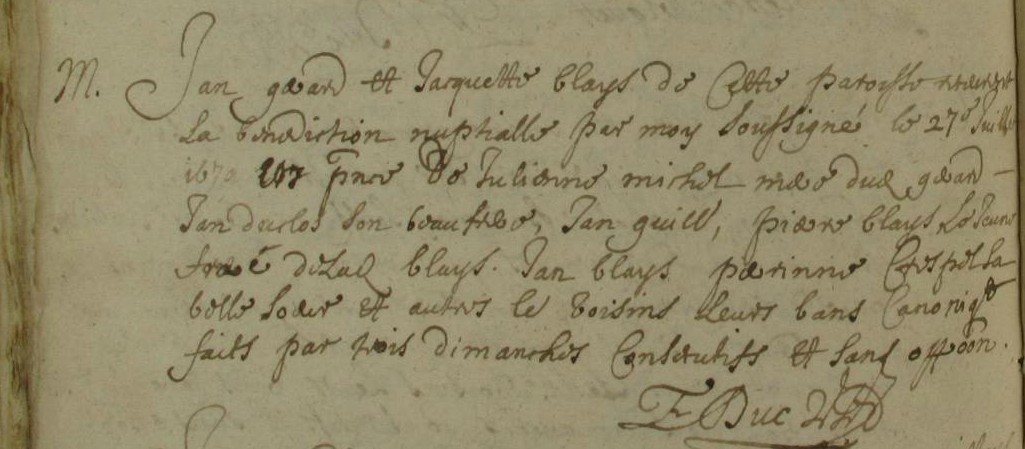 M. Jan gærard et Jacquette blays de Cette paroysse
La benediction nuptialle par moy soussigné le 27e Juillet
1670 en pnce De Julienne michel mære dud gærard
Jan duclos son beaufrere, Jan guill, piære blays Le Jeune
frære de lad blays. Jan blays pærinne Crespel sa
belle soeur et autres le voisins Leurs bans Canoniqt
faits par trois dimanches Consecutifs et sans oppoon.
F Duc